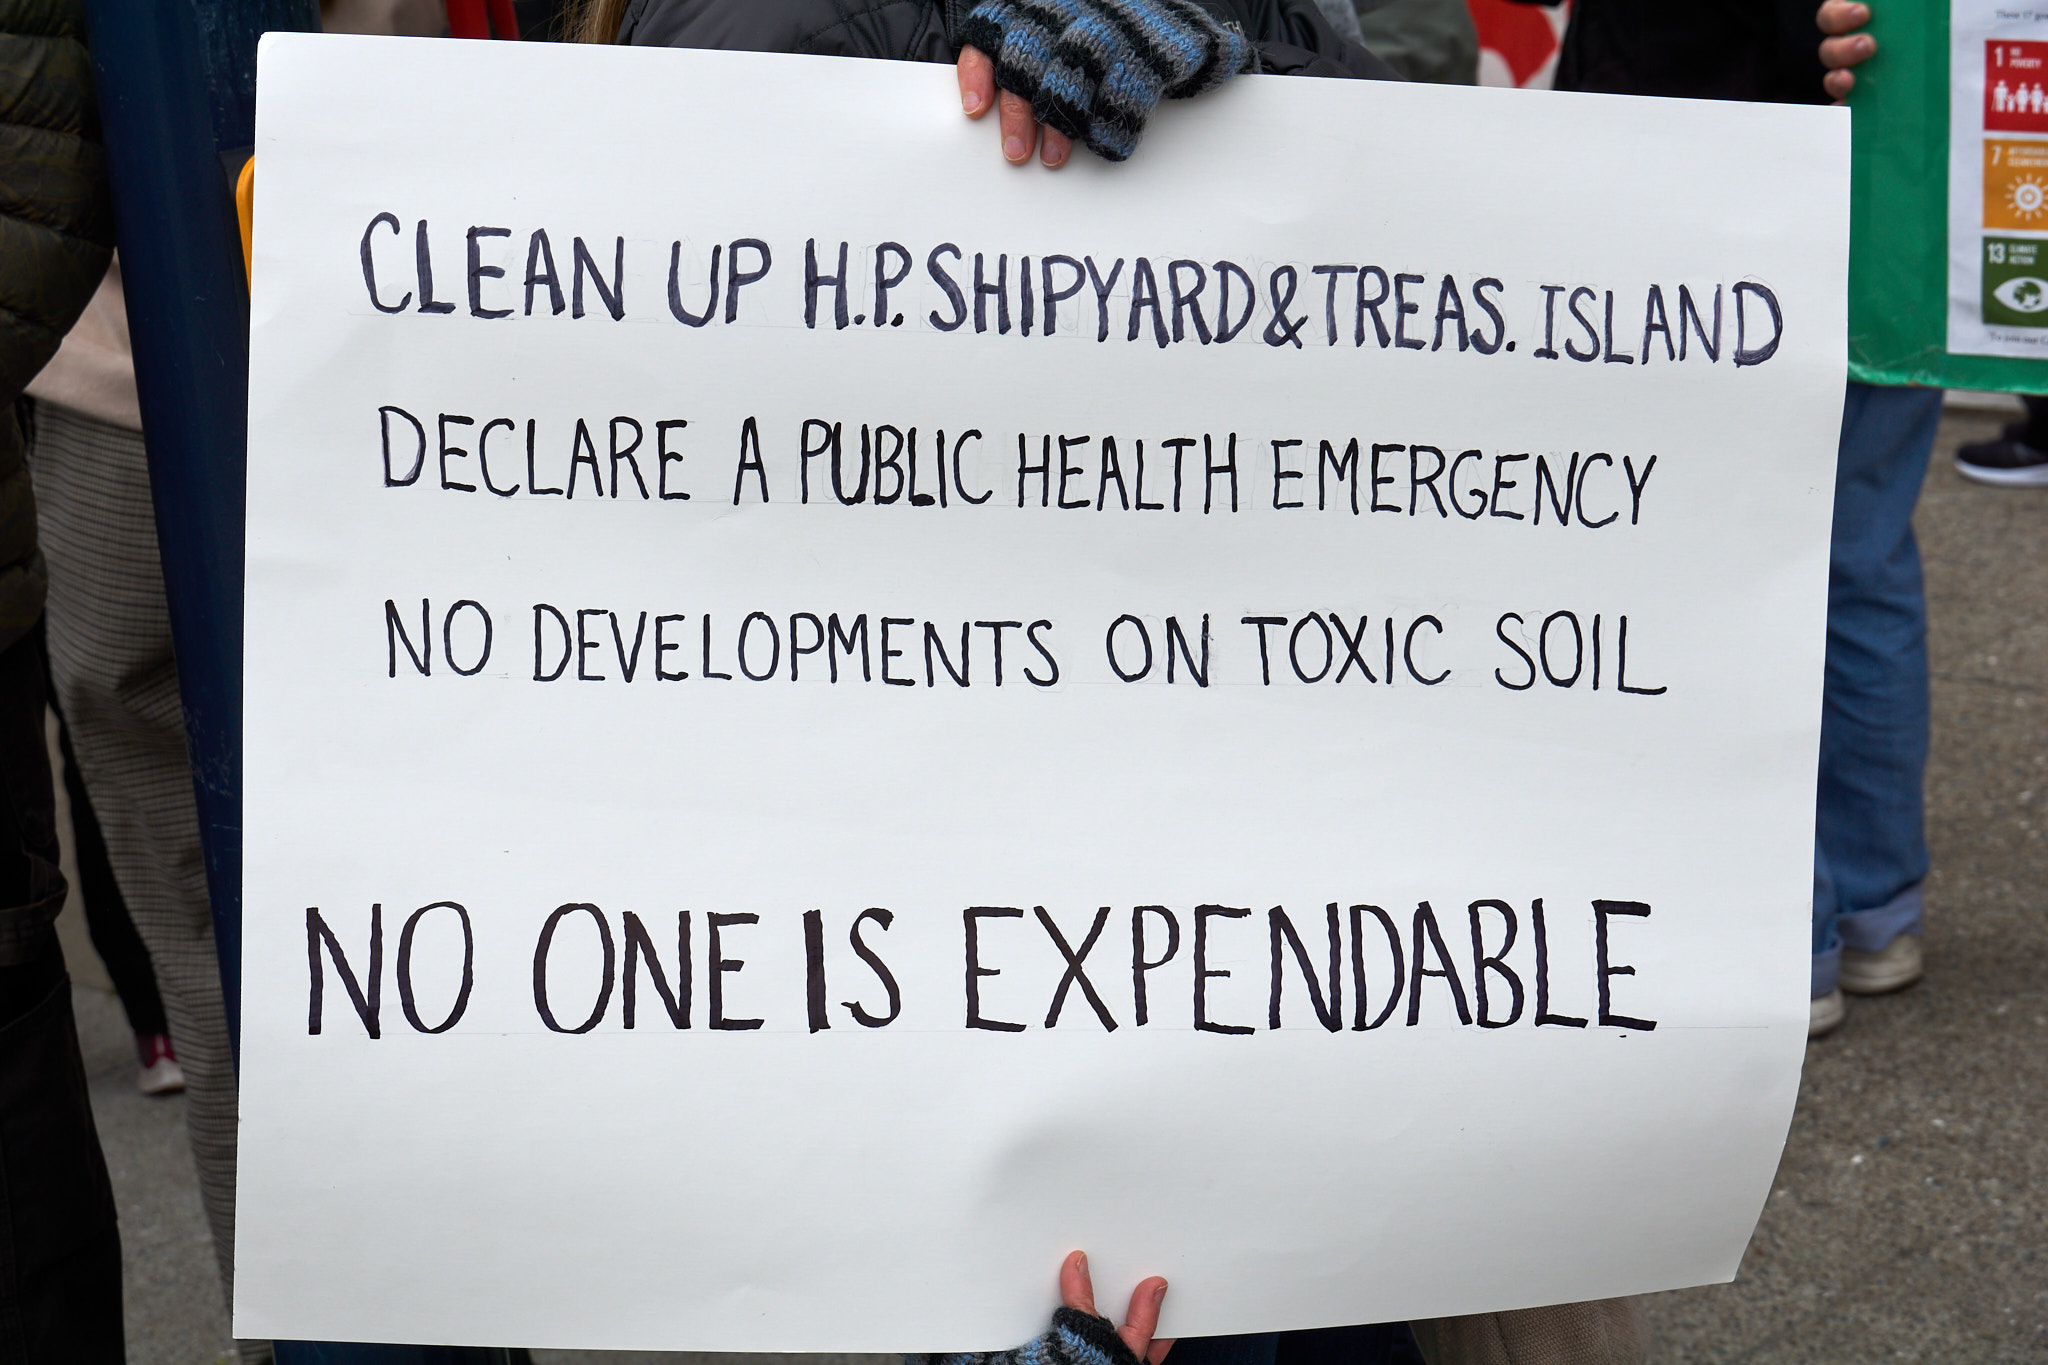 CLEAN UP H.P. SHIPYARD & TREAS. ISLAND
DECLARE A PUBLIC HEALTH EMERGENCY
NO DEVELOPMENTS ON TOXIC SOIL
NO ONE IS EXPENDABLE
1 NO
POVERTY
7
13 CLIMATE
ACTION